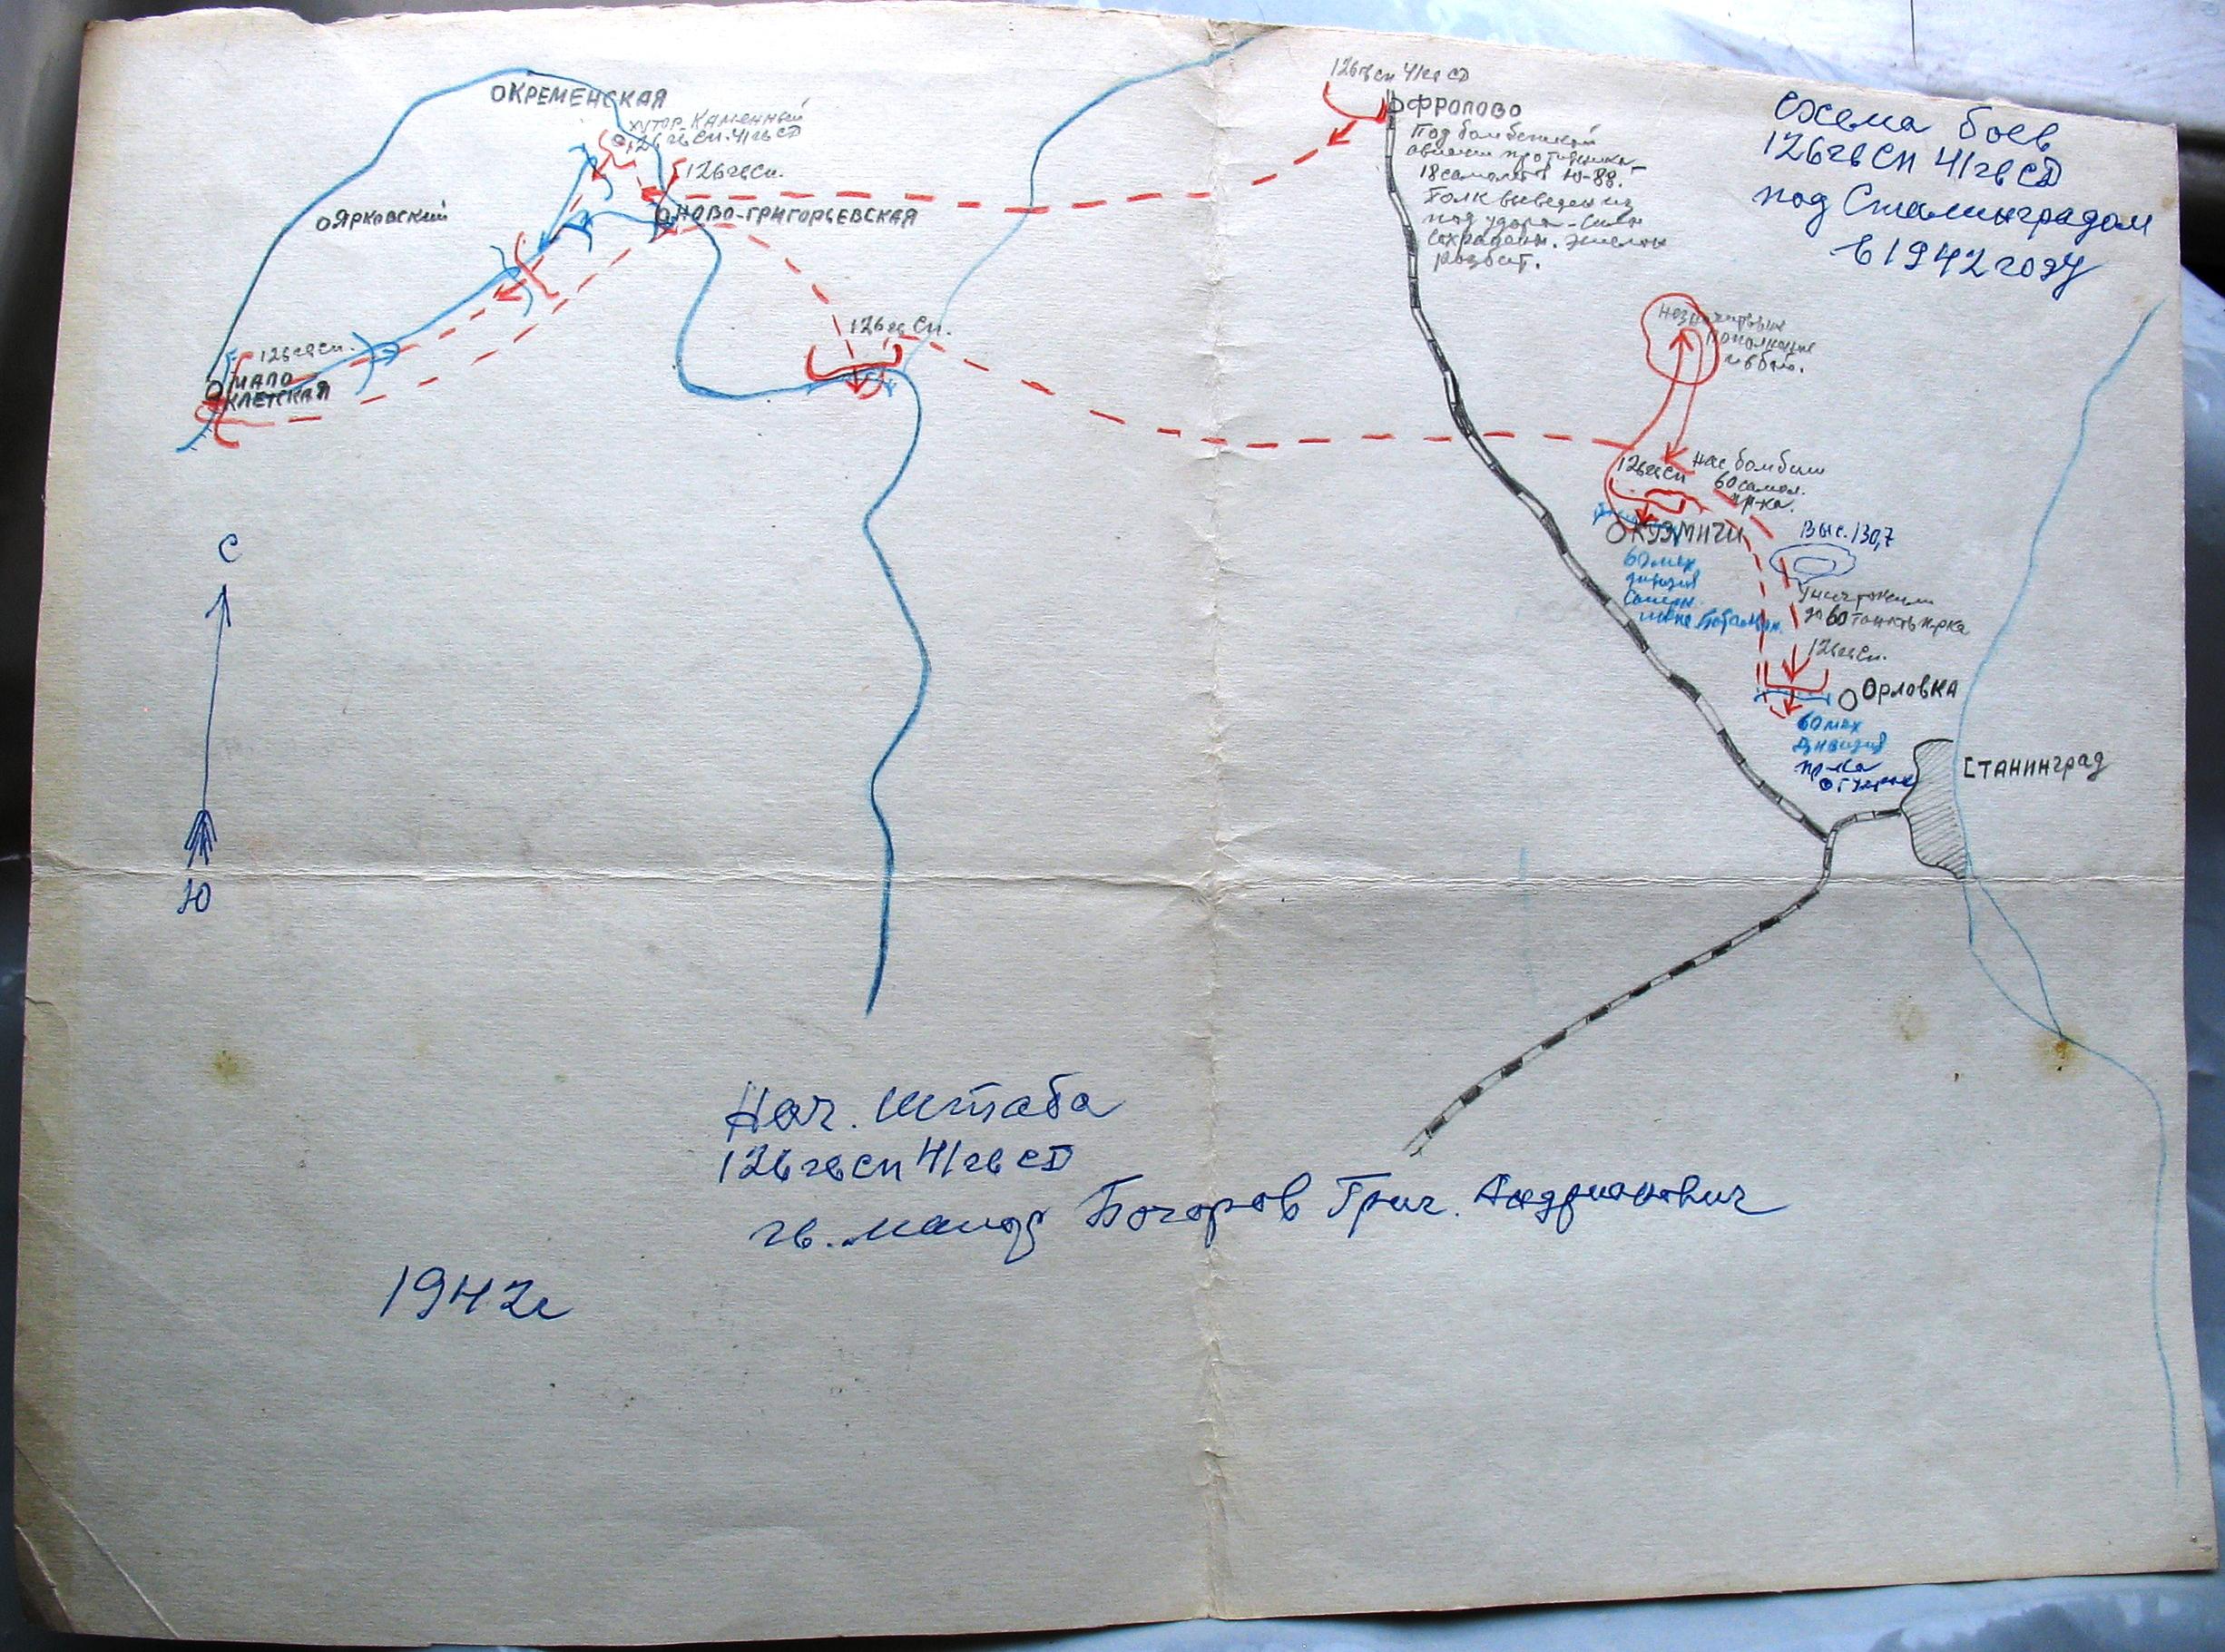 Схема боев
126 гв СП 41 гв СД
под Сталинградом
в 1942 году
КРЕМЕНСКАЯ
хутор Каменный
126 гв СП. 41 гв СД
126 гв СП.
НОВО-ГРИГОРЬЕВСКАЯ
ЯРКОВСКИЙ
126 гв СП.
МАЛО
КЛЕТСКАЯ
126 гв СП.
126 гв СП 41 гв СД
ФРОЛОВО
Под бомбежкой
авиации противника
18 самолетов Ю-88.
Полк выведен из
под удара - силы
сохранены. Эшелон
разбит.
пополнение
и в бой.
126 гв СП
Нас бомбили
60 самол.
пр-ка.
КУЗМИЧИ
60 мех
дивизия
Выс. 130,7
Уничтожили
до 60 танков пр-ка
126 гв СП.
ОРЛОВКА
60 мех
Дивизия
пр-ка
СТАНИНГРАД
С
Ю
Нач. Штаба
126 гв СП 41 гв СД
гв. майор Бочоров Григ. Андрианович
1942 г